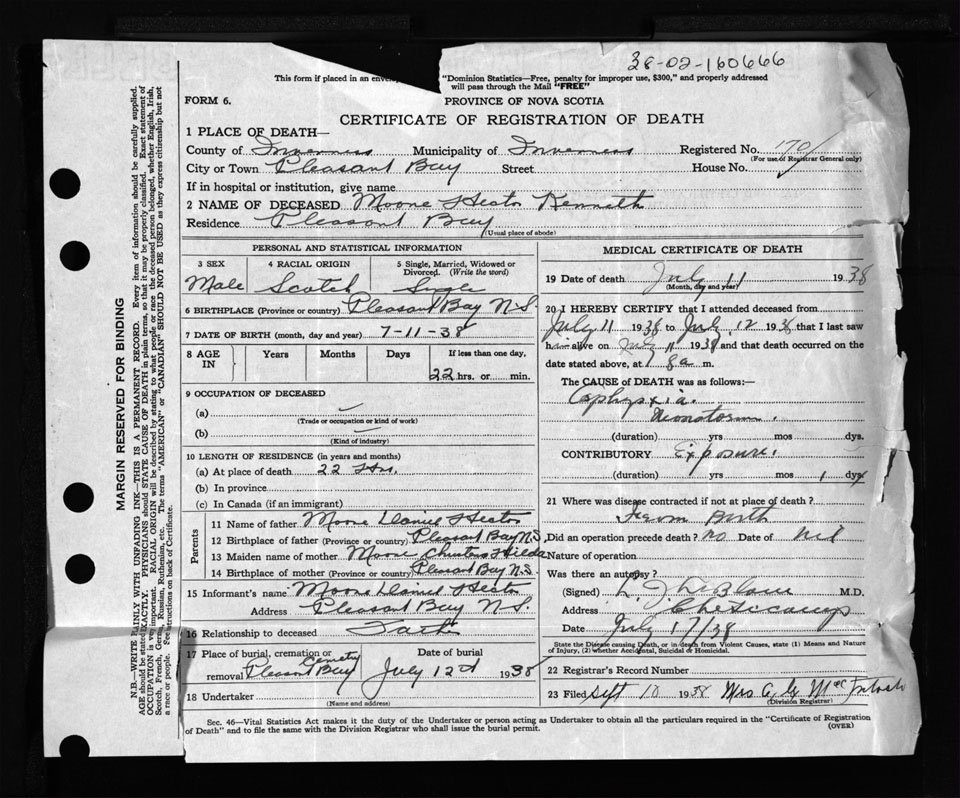 38-02-160666
This form if placed in an enve "Dominion Statistics—Free, penalty for improper use, $300," and properly addressed
will pass through the Mail "FREE"
FORM 6.
PROVINCE OF NOVA SCOTIA
CERTIFICATE OF REGISTRATION OF DEATH
1 PLACE OF DEATH—
County of Inverness Municipality of Inverness Registered No. 170
(For use of Registrar General only)
City or Town Pleasant Bay Street House No.
If in hospital or institution, give name
2 NAME OF DECEASED Moore Hector Kenneth
Residence Pleasant Bay
(Usual place of abode)
PERSONAL AND STATISTICAL INFORMATION
3 SEX 4 RACIAL ORIGIN 5 Single, Married, Widowed or Divorced. (Write the word)
Male Scotch Single
6 BIRTHPLACE (Province or country) Pleasant Bay N.S.
7 DATE OF BIRTH (month, day and year) 7-11-38
8 AGE IN Years Months Days If less than one day,
22 hrs. or min.
9 OCCUPATION OF DECEASED
(a)
(Trade or occupation or kind of work)
(b)
(Kind of industry)
10 LENGTH OF RESIDENCE (in years and months)
(a) At place of death 22 Hrs.
(b) In province
(c) In Canada (if an immigrant)
Parents
11 Name of father Moore Daniel Hector
12 Birthplace of father (Province or country) Pleasant Bay N.S.
13 Maiden name of mother Moore Hilda
14 Birthplace of mother (Province or country) Pleasant Bay N.S.
15 Informant's name Moore Daniel Hector
Address Pleasant Bay N.S.
16 Relationship to deceased Father
17 Place of burial, cremation or removal Pleasant Bay Cemetery Date of burial July 12th 1938
18 Undertaker
(Name and address)
MEDICAL CERTIFICATE OF DEATH
19 Date of death July 11 1938
(Month, day and year)
20 I HEREBY CERTIFY that I attended deceased from
July 11 1938 to July 12 1938 that I last saw
h alive on July 11 1938 and that death occurred on the
date stated above, at 8 a m.
The CAUSE OF DEATH was as follows:—
Asphyxia
Neonatorum.
(duration) yrs mos dys.
CONTRIBUTORY Exposure.
(duration) yrs mos 1 dys
21 Where was disease contracted if not at place of death?
From Birth
Did an operation precede death? no Date of nil
Nature of operation
Was there an autopsy?
(Signed) L. J. M.D.
Address Cheticamp
Date July 17/38
State the Disease causing Death, or in death from Violent Causes, state (1) Means and Nature
of Injury, (2) whether Accidental, Suicidal or Homicidal.
22 Registrar's Record Number
23 Filed Sept 10 1938 Mrs A. MacIntosh
(Division Registrar)
Sec. 46—Vital Statistics Act makes it the duty of the Undertaker or person acting as Undertaker to obtain all the particulars required in the "Certificate of Registration
of Death" and to file the same with the Division Registrar who shall issue the burial permit.
(OVER)
MARGIN RESERVED FOR BINDING
N.B.—WRITE PLAINLY WITH UNFADING INK—THIS IS A PERMANENT RECORD. Every item of information should be carefully supplied.
AGE should be stated EXACTLY. PHYSICIANS should STATE CAUSE OF DEATH in plain terms, so that it may be properly classified. Exact statement of
OCCUPATION is very important. RACIAL ORIGIN will be described by stating to what people or race the deceased person belonged, whether English, Irish,
Scotch, French, German, Russian, Ruthenian, etc. The terms "AMERICAN" or "CANADIAN" SHOULD NOT BE USED as they express citizenship but not
a race or people. See instructions on back of Certificate.